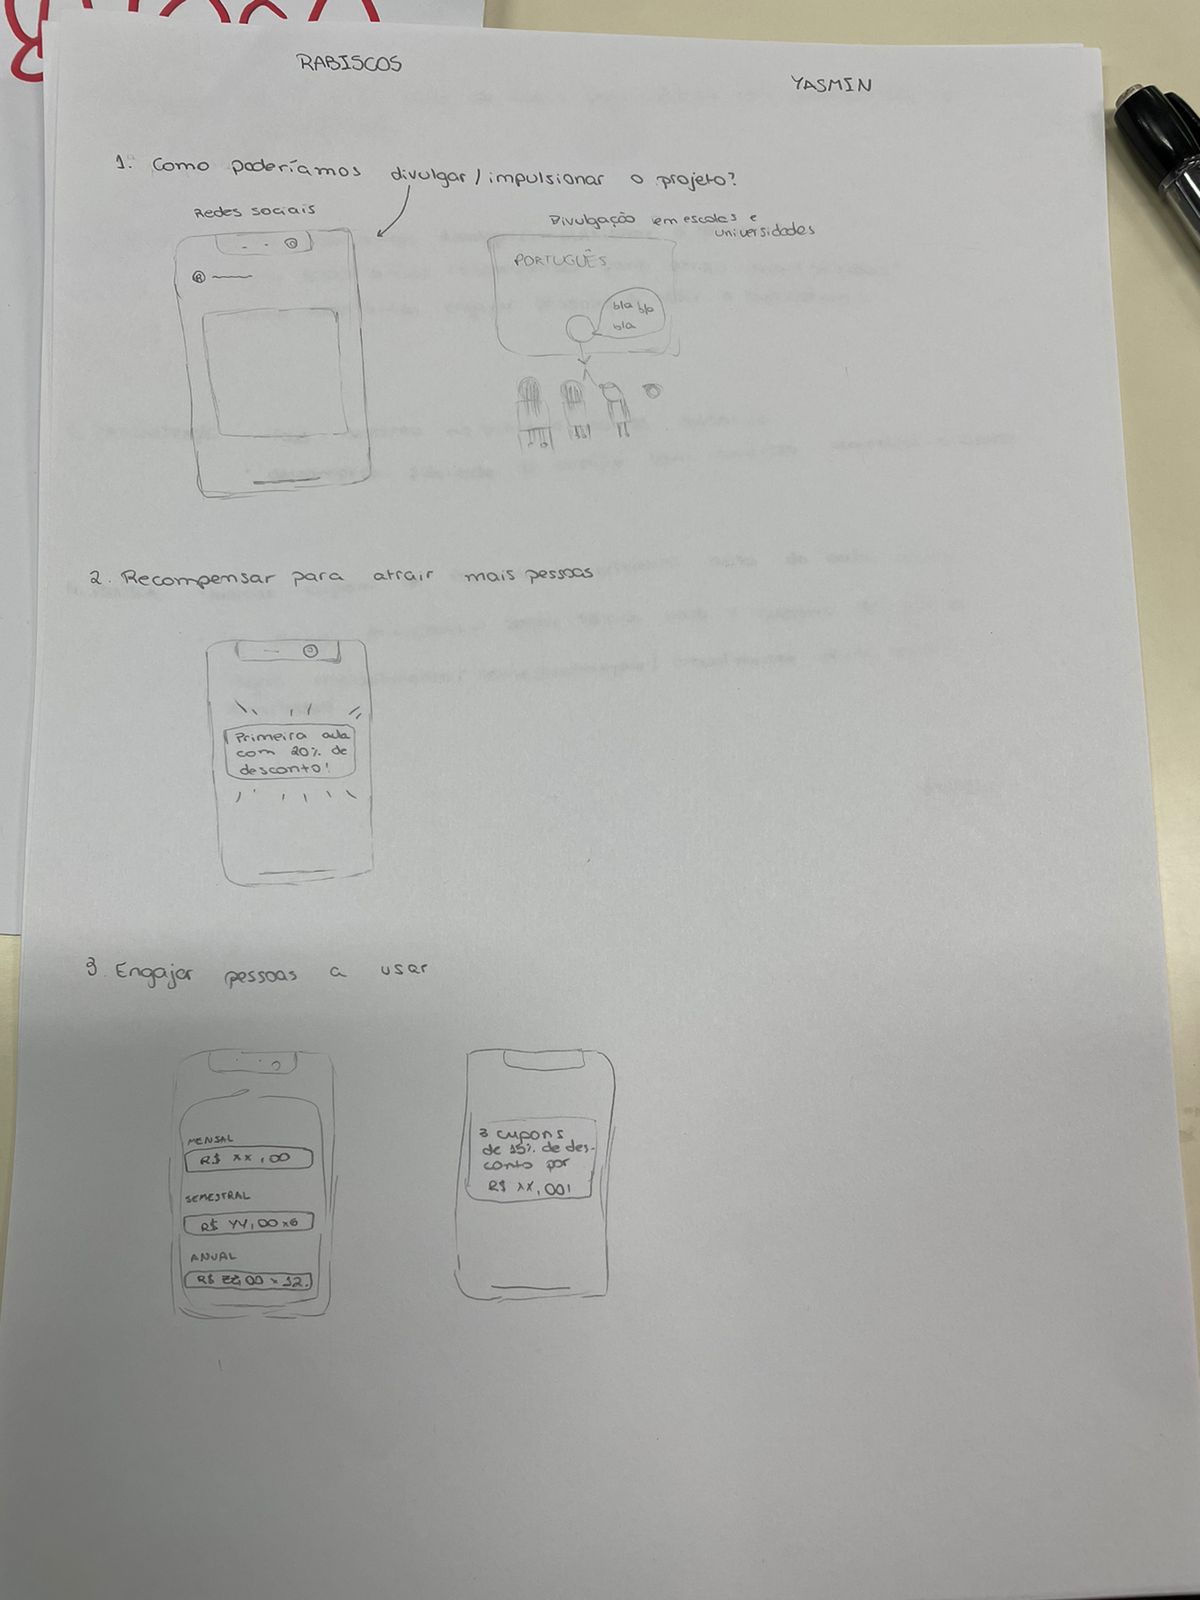 RABISCOS
YASMIN
1. Como poderíamos divulgar/impulsionar o projeto?
Redes sociais
R
Divulgação em escolas e
universidades
PORTUGUÊS
bla bla
bla
2. Recompensar para atrair mais pessoas
Primeira aula
com 20% de
desconto!
3. Engajar pessoas a usar
MENSAL
R$ XX,00
SEMESTRAL
R$ YY,00x6
ANUAL
R$ ZZ,00 x 12.
3 cupons
de 15% de des-
conto por
R$ XX,00!